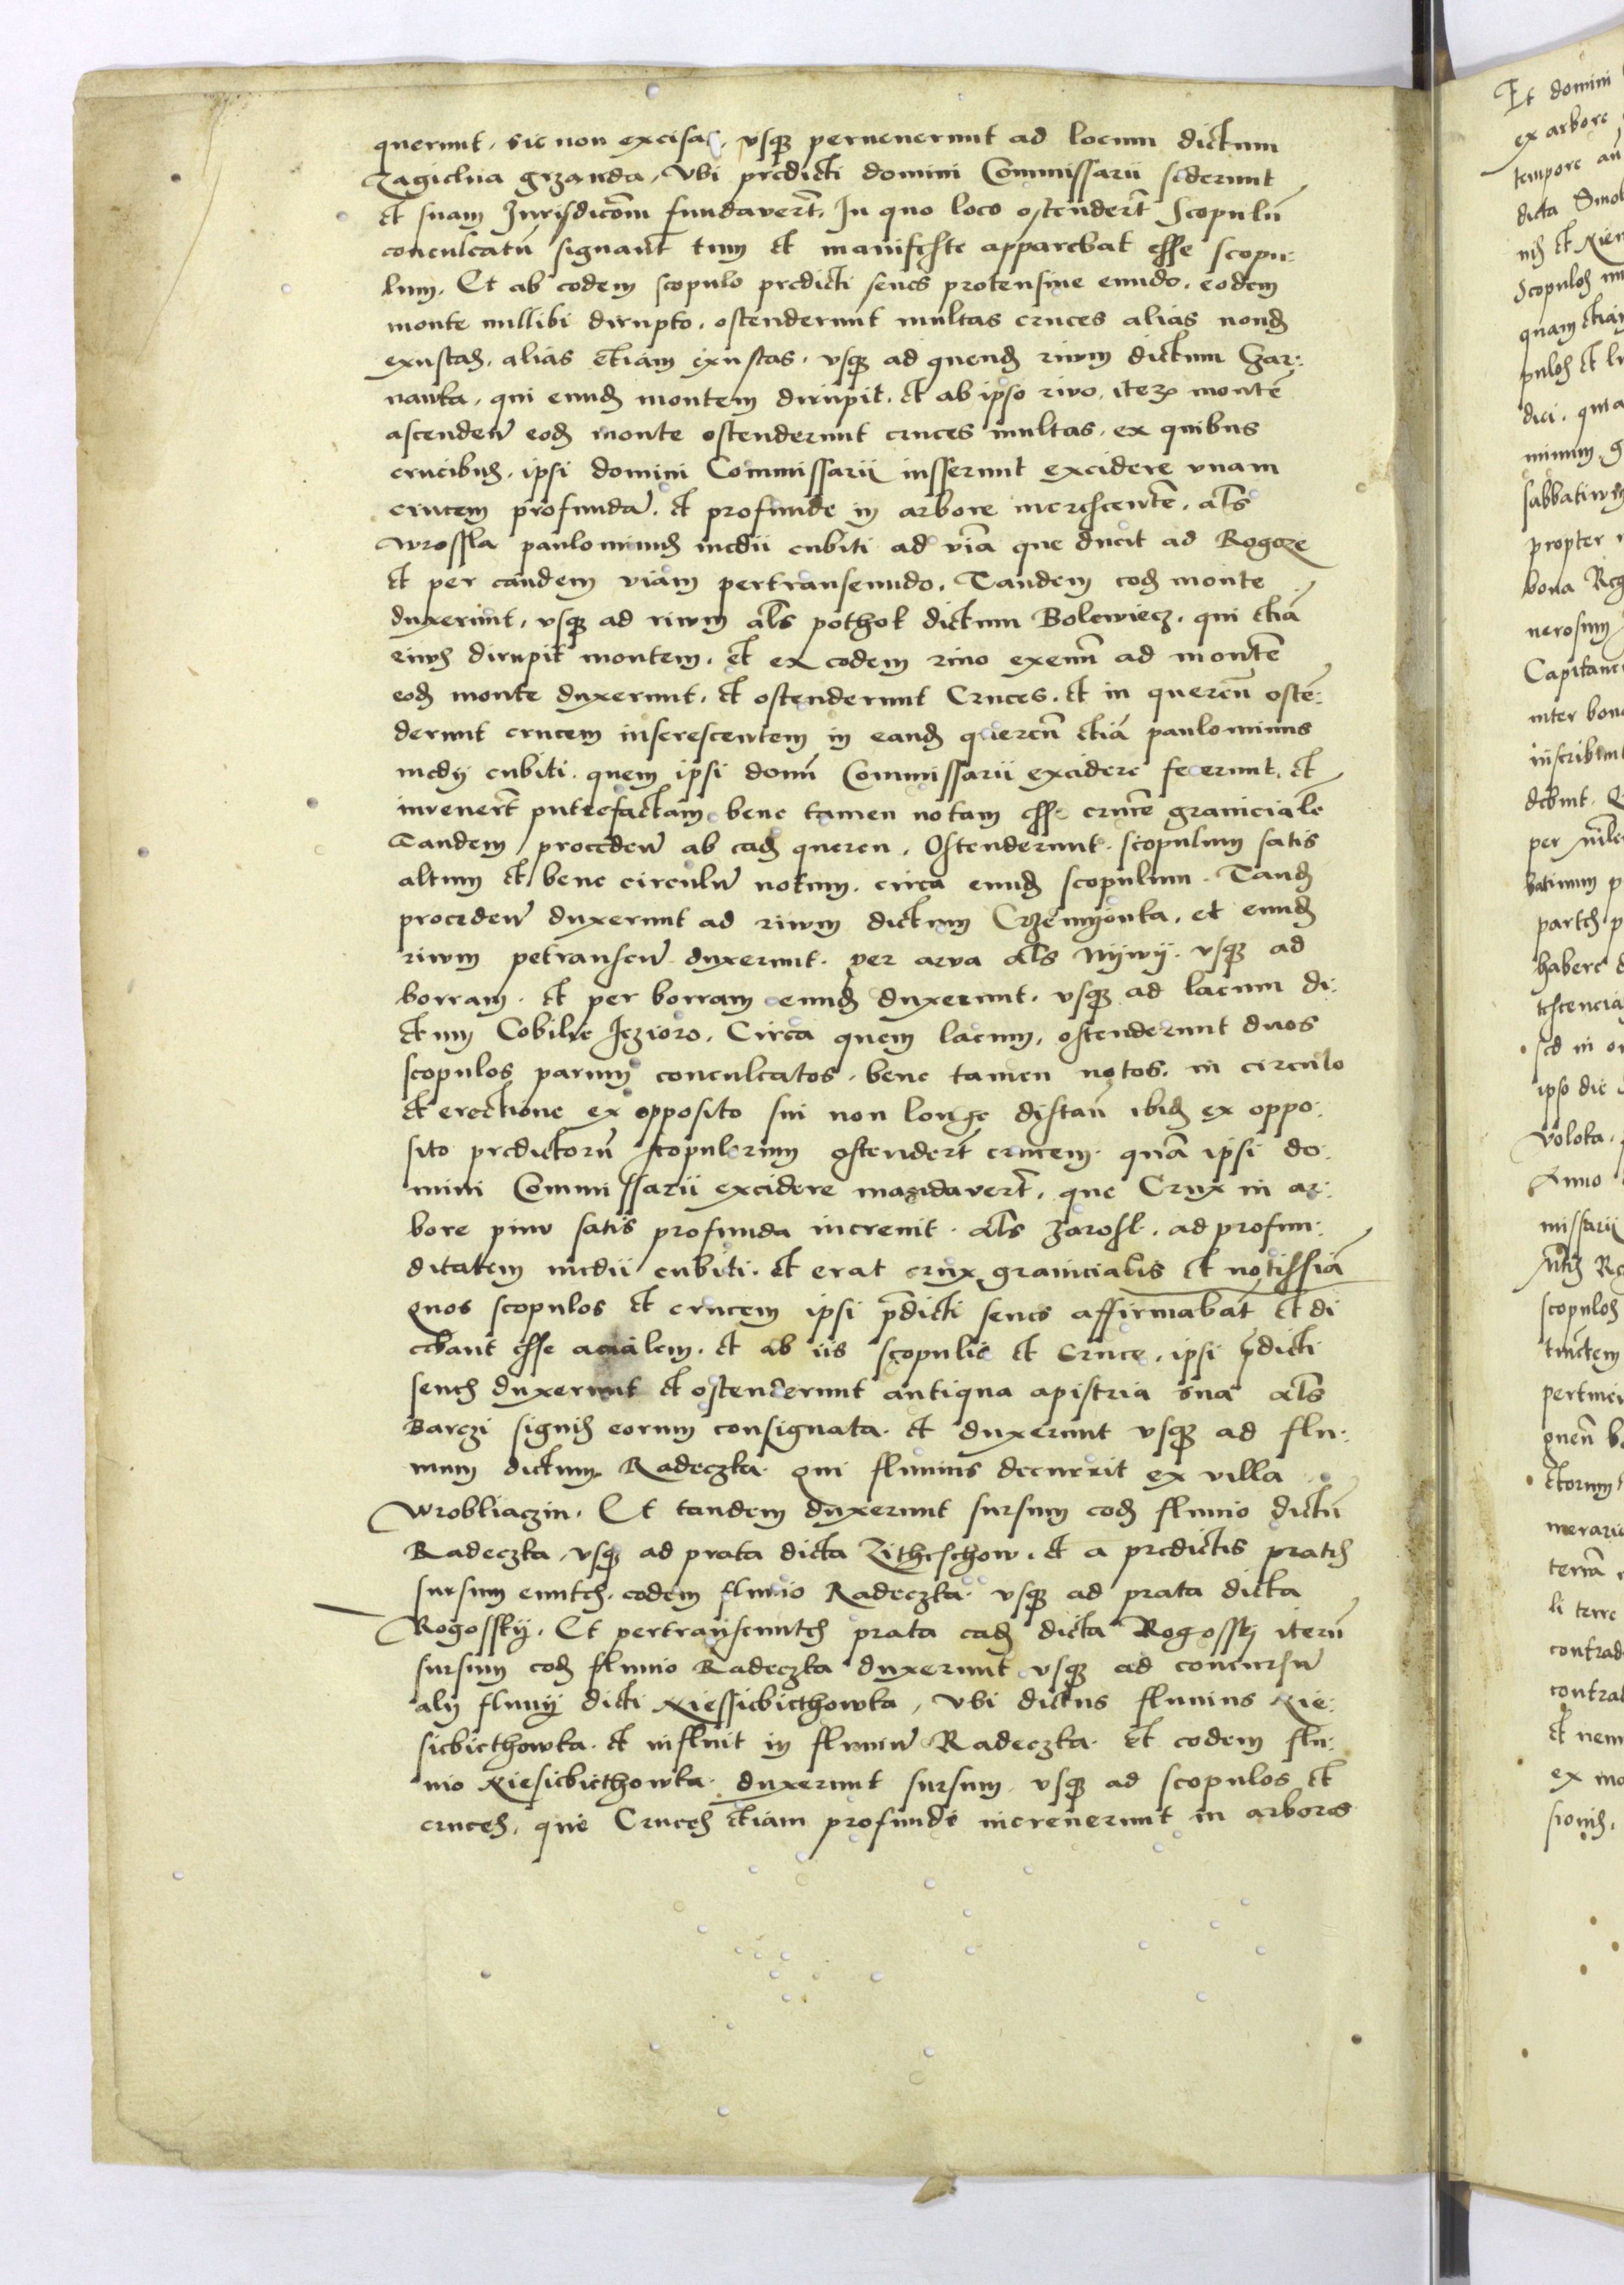 querunt, sic non excisas, vsque pervenerunt ad locum dictum
Zagielna grzanda, Vbi predicti domini Commissarii sederunt
et suam Jurisdicōm fundaverūt, In quo loco ostenderūt Scopulū
conculcatū signant tum et manifeste apparebat esse scopu:
lum. Et ab eodem scopulo predicti senes protensive eundo, eodem
monte nullibi dirupto, ostenderunt multas cruces alias nondum
exustas, alias etiam exustas, vsque ad quendam rivum dictum Czar:
nawka, qui eundem montem dirupit, et ab ipso rivo, iterum montē
ascendendo eodem monte ostenderunt cruces multas, ex quibus
crucibus, ipsi domini Commissarii iusserunt excidere vnam
crucem profundā, et profunde in arbore increscentē, als
wrossla paulominus medii cubiti ad viā que ducit ad Rogoze
et per eandem viam pertranseundo. Tandem eodem monte
duxerunt, vsque ad rivum als pothok dictum Bolewiecz, qui etiā
eius dirupit montem, et ex eodem rivo exeundo ad montē
eodem monte duxerunt, et ostenderunt Cruces, et in quercū ostē:
derunt crucem inscrescentem in eandem quercū etiā paulominus
medij cubiti, quem ipsi domini Commissarii excidere fecerunt, et
invenerūt putrefactam, bene tamen notam esse crucē granicialē
Tandem procedendo ab eadem quercu, Ostenderunt scopulum satis
altum et bene circulū notum, circa eundem scopulum. Tandem
procedendo duxerunt ad rivum dictum Crzemyonka, et eundem
rivum petranseundo duxerunt, per arva als Nÿwÿ, vsque ad
borram, et per borram eundem duxerunt, vsque ad lacum di:
ctum Cobilie Jezioro, Circa quem lacum, ostenderunt duos
scopulos parum conculcatos, bene tamen notos, in circulo
et erectione ex opposito sui non longe distan̄ ibidem ex oppo:
sito predictorū scopulorum ostenderūt crucem, quā ipsi do:
mini Commissarii excidere mandaverūt, que Crux in ar:
bore pinu satis profunda increuit, als zarosl, ad profun:
ditatem medii cubiti, et erat crux granicialis et notissiā
Quos scopulos et crucem ipsi p̄dicti senes affirmabāt et di
cebant esse acialem, et ab iis scopulis et Cruce, ipsi p̄dicti
senes duxerunt et ostenderunt antiqua apistria sua als
Barczi signis eorum consignata, et duxerunt vsque ad flu:
uium dictum Radeczka, qui fluuius decurrit ex villa
Wrobliaczin. Et tandem duxerunt sursum eodem fluuio dictū
Radeczka, vsque ad prata dicta Zitheschow, et a predictis pratis
sursum euntes, eodem fluuio Radeczka, vsque ad prata dicta
Rogosskÿ. Et pertranseuntes prata eadem dicta Rogosskj iterū
sursum eodem fluuio Radeczka duxerunt vsque ad concursū
alÿ fluuÿ dicti Niessiebicthowka, Vbi dictus fluuius Nie:
siebicthowka, et influit in fluuiū Radeczka, et eodem flu:
uio Niesiebicthowka, duxerunt sursum, vsque ad scopulos et
cruces, que Cruces etiam profunde increuerunt in arbores